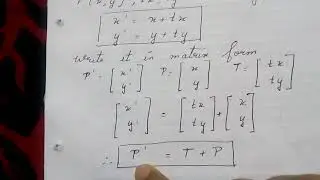 x' = x + tx
y' = y + ty
write it in matrix form
P' = [x' y'] P = [x y] T = [tx ty]
[x' y'] = [tx ty] + [x y]
∴ P' = T + P